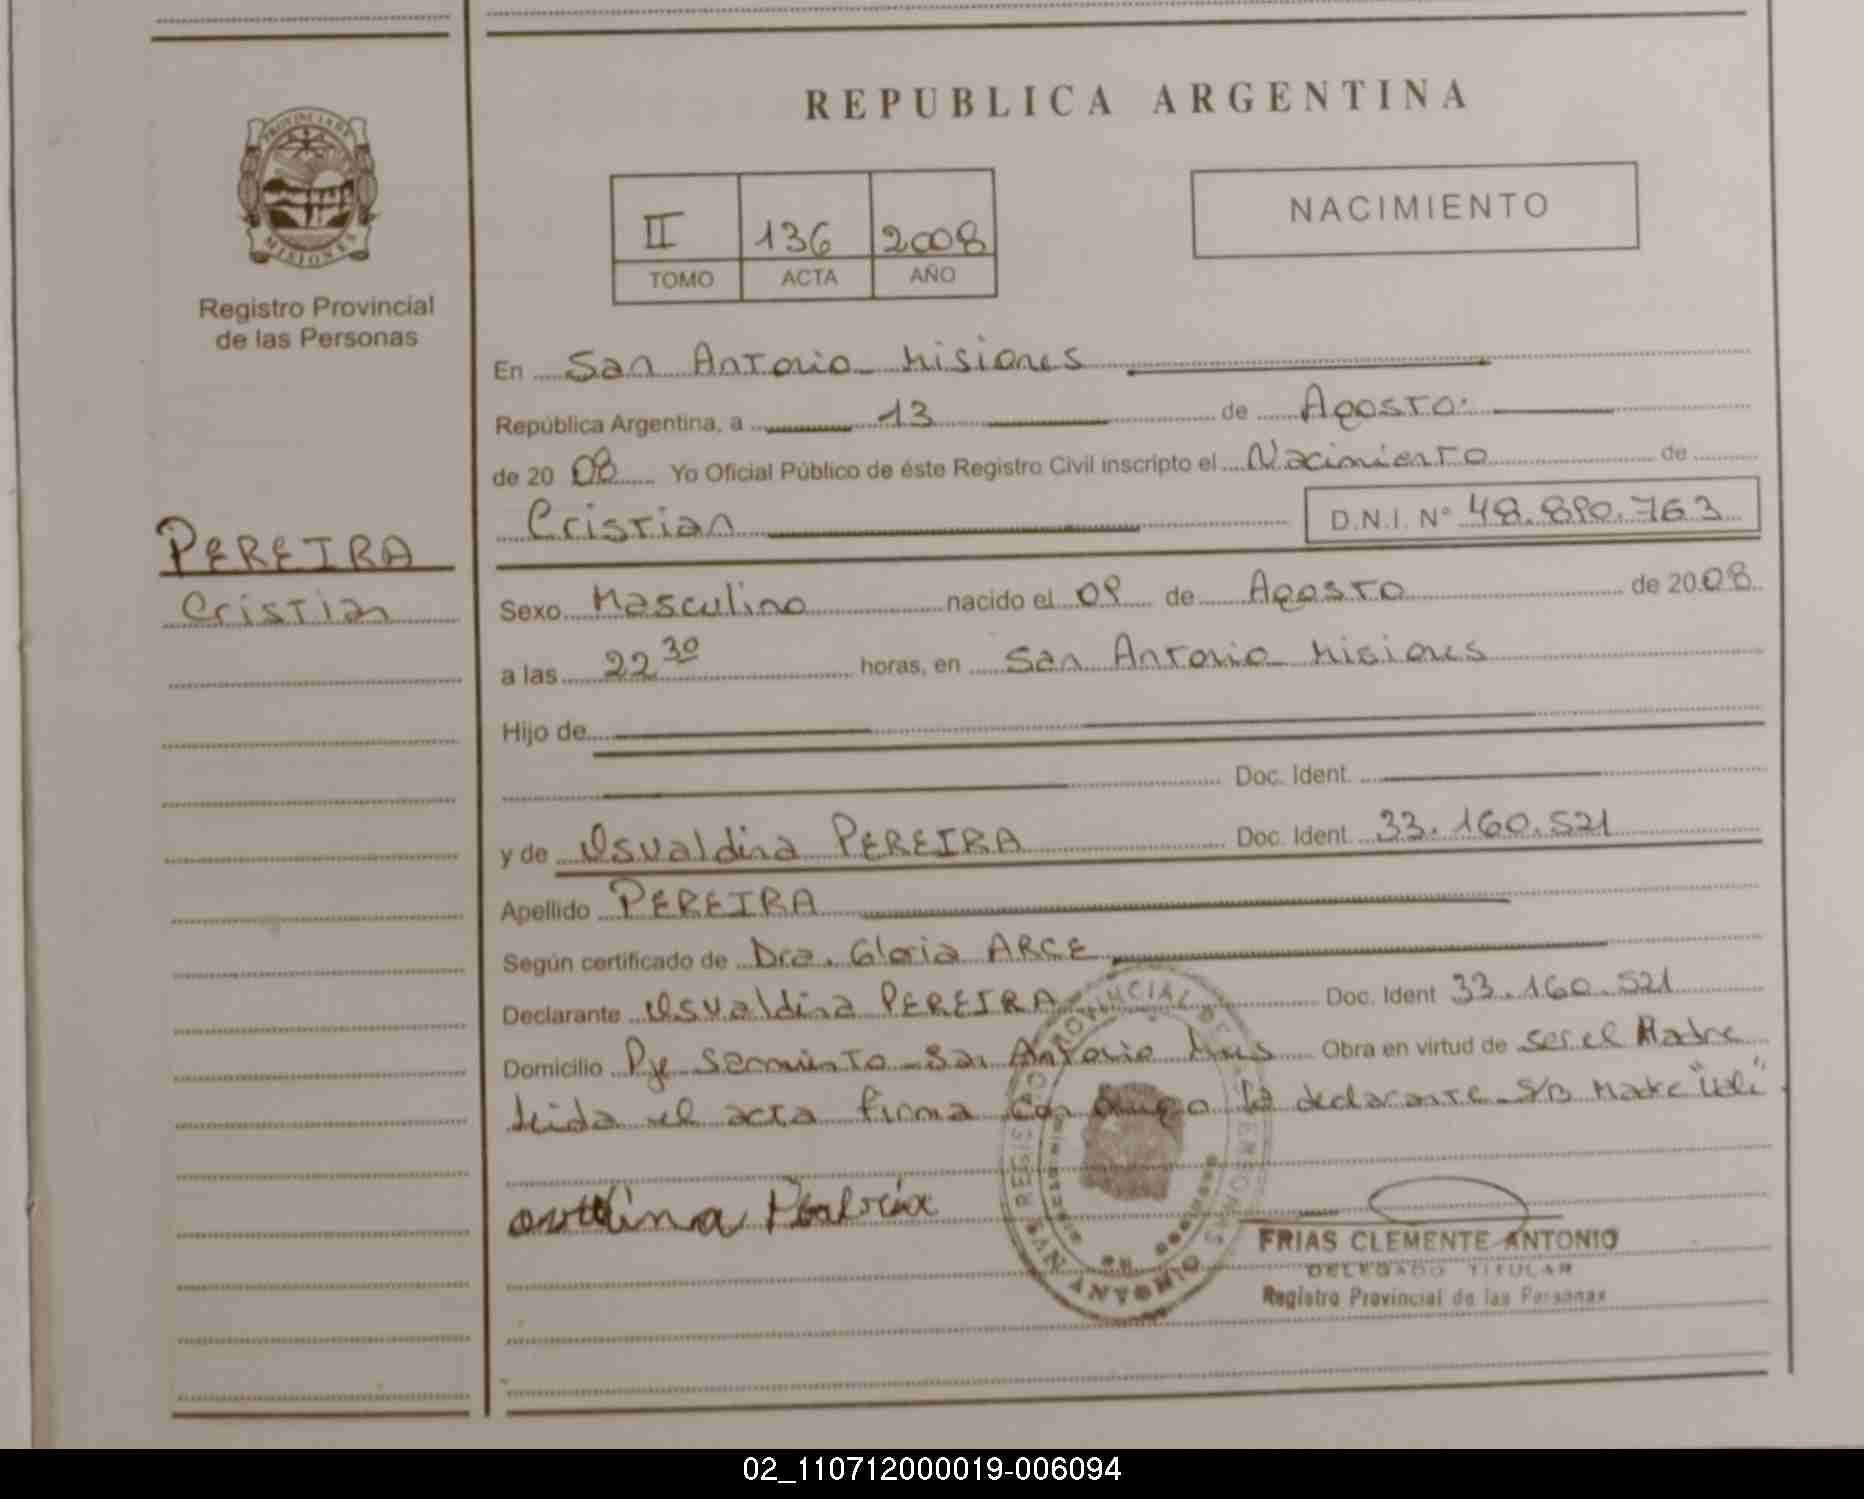 REPUBLICA ARGENTINA
PROVINCIA DE
MISIONES
Registro Provincial
de las Personas
II 136 2008
TOMO ACTA AÑO
NACIMIENTO
En San Antonio Misiones
República Argentina, a 13 de Agosto
de 20 08 Yo Oficial Público de éste Registro Civil inscripto el Nacimiento de
Cristian D.N.I. Nº 48.890.763
PEREIRA
Cristian
Sexo Masculino nacido el 09 de Agosto de 20 08
a las 22 30 horas, en San Antonio Misiones
Hijo de
Doc. Ident.
y de Osvaldina PEREIRA Doc. Ident. 33.160.521
Apellido PEREIRA
Según certificado de Dra. Gloria ARCE
Declarante Osvaldina PEREIRA Doc. Ident 33.160.521
Domicilio Pje Sarmiento San Antonio Mnes Obra en virtud de ser el Madre
leida el acta firma conmigo la declarante S/B Madre
REGISTRO PROVINCIAL DE LAS PERSONAS
SAN ANTONIO
FRIAS CLEMENTE ANTONIO
DELEGADO TITULAR
Registro Provincial de las Personas
02_110712000019-006094